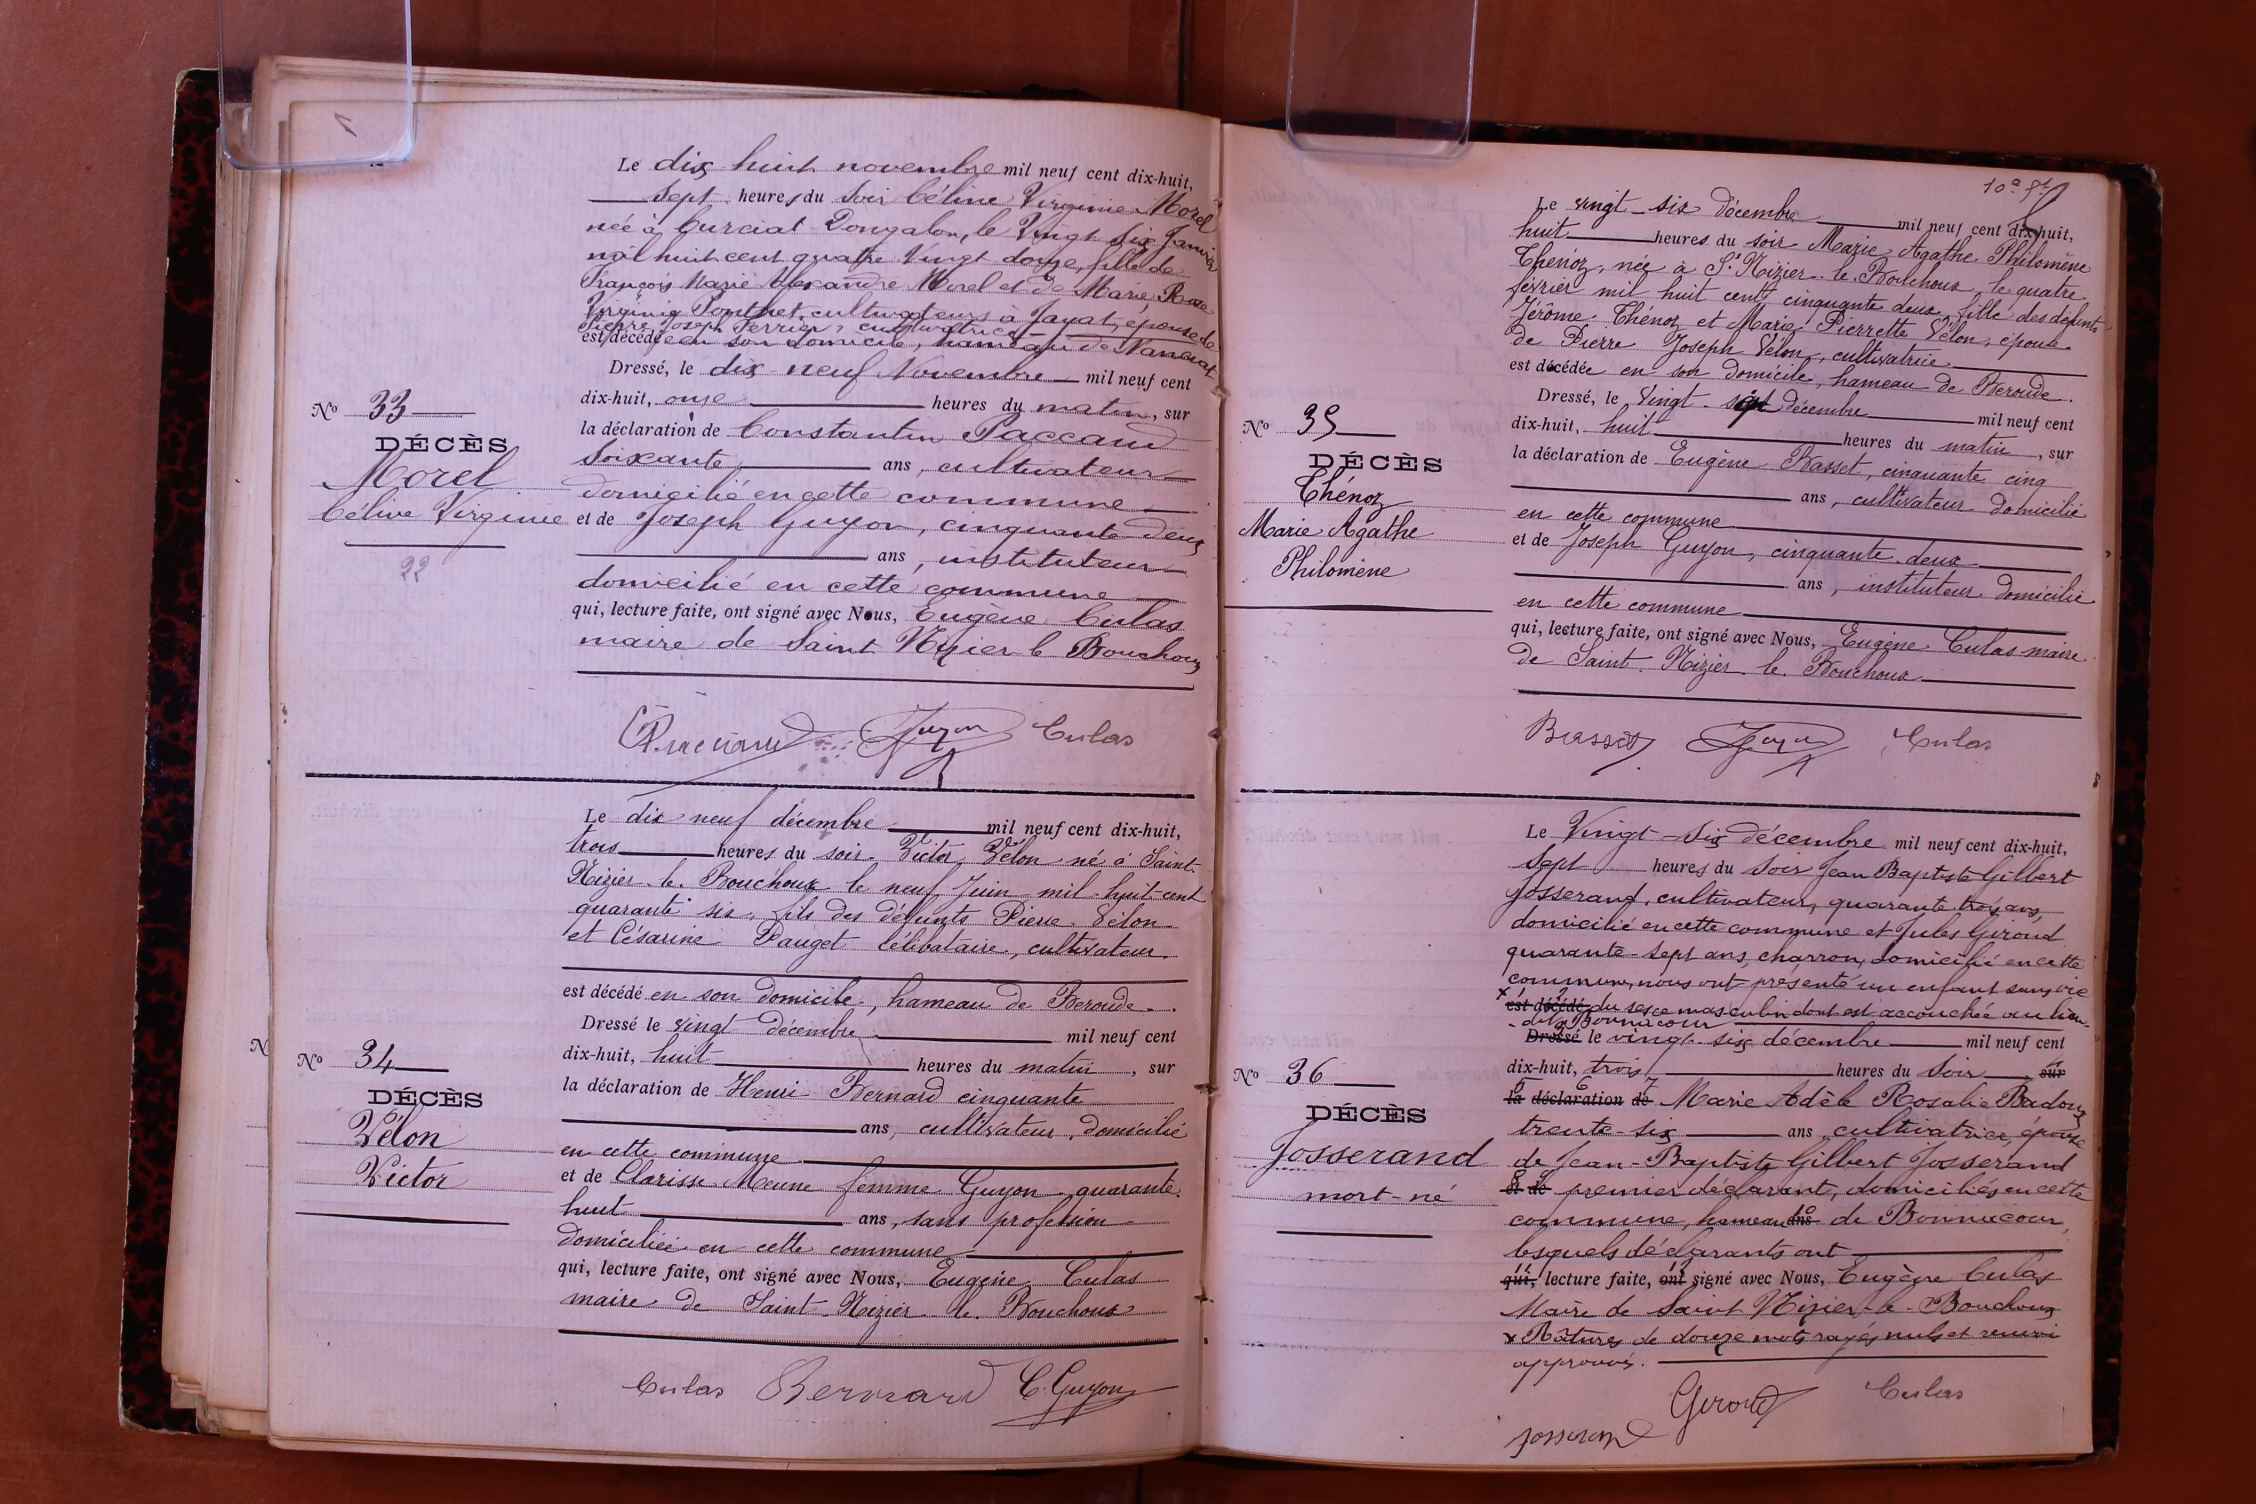 Le dix huit novembre mil neuf cent dix-huit,
sept heures du soir Céline Virginie Morel
née à Curciat Dongalon, le Vingt Six Janvier
mil huit cent quatre Vingt douze, fille de
François Marie Alexandre Morel et de Marie Rose
Virginie Ponthet, cultivateurs à Jayat, épouse de
Pierre Joseph Perrier, cultivatrice
est décédée en son domicile, hameau de Nancuat
Dressé, le dix neuf Novembre mil neuf cent
dix-huit, onze heures du matin, sur
la déclaration de Constantin Paccaud
soixante ans, cultivateur
domicilié en cette commune
et de Joseph Guyon, cinquante deux
ans, instituteur
domicilié en cette commune
qui, lecture faite, ont signé avec Nous, Eugène Culas
maire de Saint Nizier le Bouchoux
No 33
DÉCÈS
Morel
Céline Virginie
22
C Paccaud Guyon Culas
Le dix neuf décembre mil neuf cent dix-huit,
trois heures du soir Victor Vélon né à Saint-
Nizier-le-Bouchoux le neuf Juin mil-huit-cent
quarante six, fils des défunts Pierre Vélon
et Césarine Pauget célibataire, cultivateur.
est décédé en son domicile, hameau de Beroude.
Dressé le vingt décembre mil neuf cent
dix-huit, huit heures du matin, sur
la déclaration de Henri Bernard cinquante
ans, cultivateur, domicilié
en cette commune
et de Clarisse Meune femme Guyon quarante
huit ans, sans profession
domiciliée en cette commune
qui, lecture faite, ont signé avec Nous, Eugène Culas
maire de Saint-Nizier le Bouchoux
No 34
DÉCÈS
Vélon
Victor
Culas Bernard C. Guyon
Le vingt-six décembre mil neuf cent dix-huit,
huit heures du soir Marie Agathe Philomène
Thénoz, née à St Nizier-le-Bouchoux le quatre
février mil huit cent cinquante deux fille des défunts
Jérôme Thénoz et Marie Pierrette Vélon, épouse
de Pierre Joseph Vélon, cultivatrice
est décédée en son domicile, hameau de Beroude.
Dressé, le vingt-sept décembre mil neuf cent
dix-huit, huit heures du matin, sur
la déclaration de Eugène Basset, cinquante cinq
ans, cultivateur domicilié
en cette commune
et de Joseph Guyon, cinquante-deux
ans, instituteur domicilié
en cette commune
qui, lecture faite, ont signé avec Nous, Eugène Culas maire
de Saint-Nizier-le-Bouchoux
No 35
DÉCÈS
Thénoz
Marie Agathe
Philomène
Basset Guyon Culas
Le Vingt-Six décembre mil neuf cent dix-huit,
Sept heures du soir Jean Baptiste Gilbert
Josserand, cultivateur, quarante trois ans,
domicilié en cette commune et Jules Giroud
quarante-sept ans, charron, domicilié en cette
commune, nous ont présenté un enfant sans vie
x est décédé du sexe masculin dont est accouchée au lieu-
-dit Bonnacour
Dressé le vingt-six décembre mil neuf cent
dix-huit, trois heures du soir, sur
la déclaration de Marie Adèle Rosalie Badoux
trente-six ans cultivatrice, épouse
de Jean-Baptiste Gilbert Josserand
et de premier déclarant, domiciliés en cette
commune, hameau ans de Bonnacour,
lesquels déclarants ont
qui, lecture faite, ont signé avec Nous, Eugène Culas
Maire de Saint Nizier-le-Bouchoux
x Ratures de douze mots rayés nuls et renvoi
approuvés.
No 36
DÉCÈS
Josserand
mort-né
Giroud Culas
Josserand